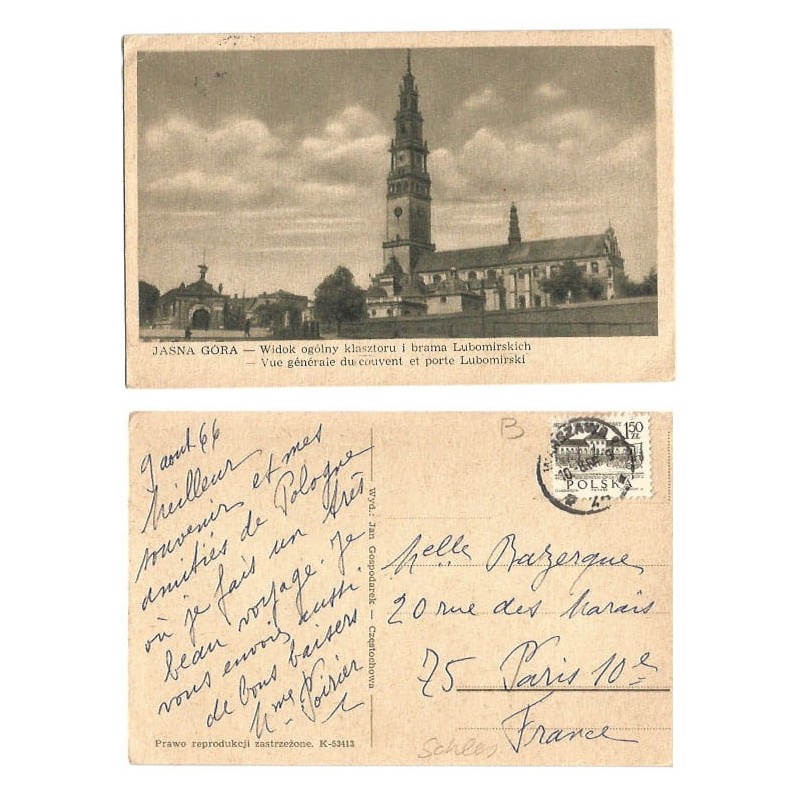 JASNA GÓRA — Widok ogólny klasztoru i brama Lubomirskich
— Vue générale du couvent et porte Lubomirski
9 aout 66
Meilleur
souvenir et mes
amitiés de Pologne
où je fais un très
beau voyage. Je
vous envoie aussi
de bons baisers
Mme Poirier
Wyd.: Jan Gospodarek — Częstochowa
Prawo reprodukcji zastrzeżone. K-53413
B
WARSZAWA
1,50
ZŁ
POLSKA
Melle Bazerque
20 rue des Marais
75 Paris 10e
France
Schles